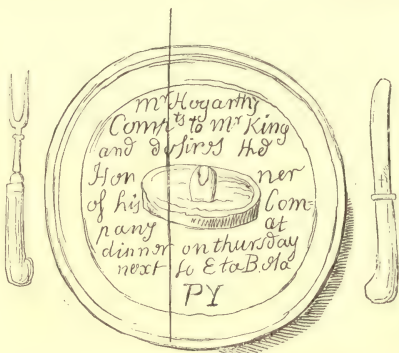 Mr Hogarth's
Compts to Mr King
and desires the
Hon ner
of his Com=
pany at
dinner on thursday
next to Eta Beta
PY